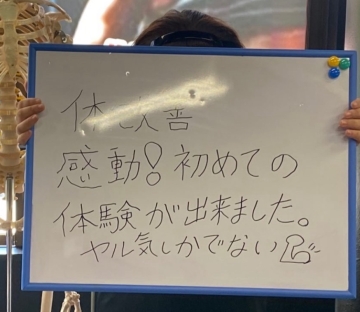 体 改善
感動!初めての
体験が出来ました。
ヤル気しかでない